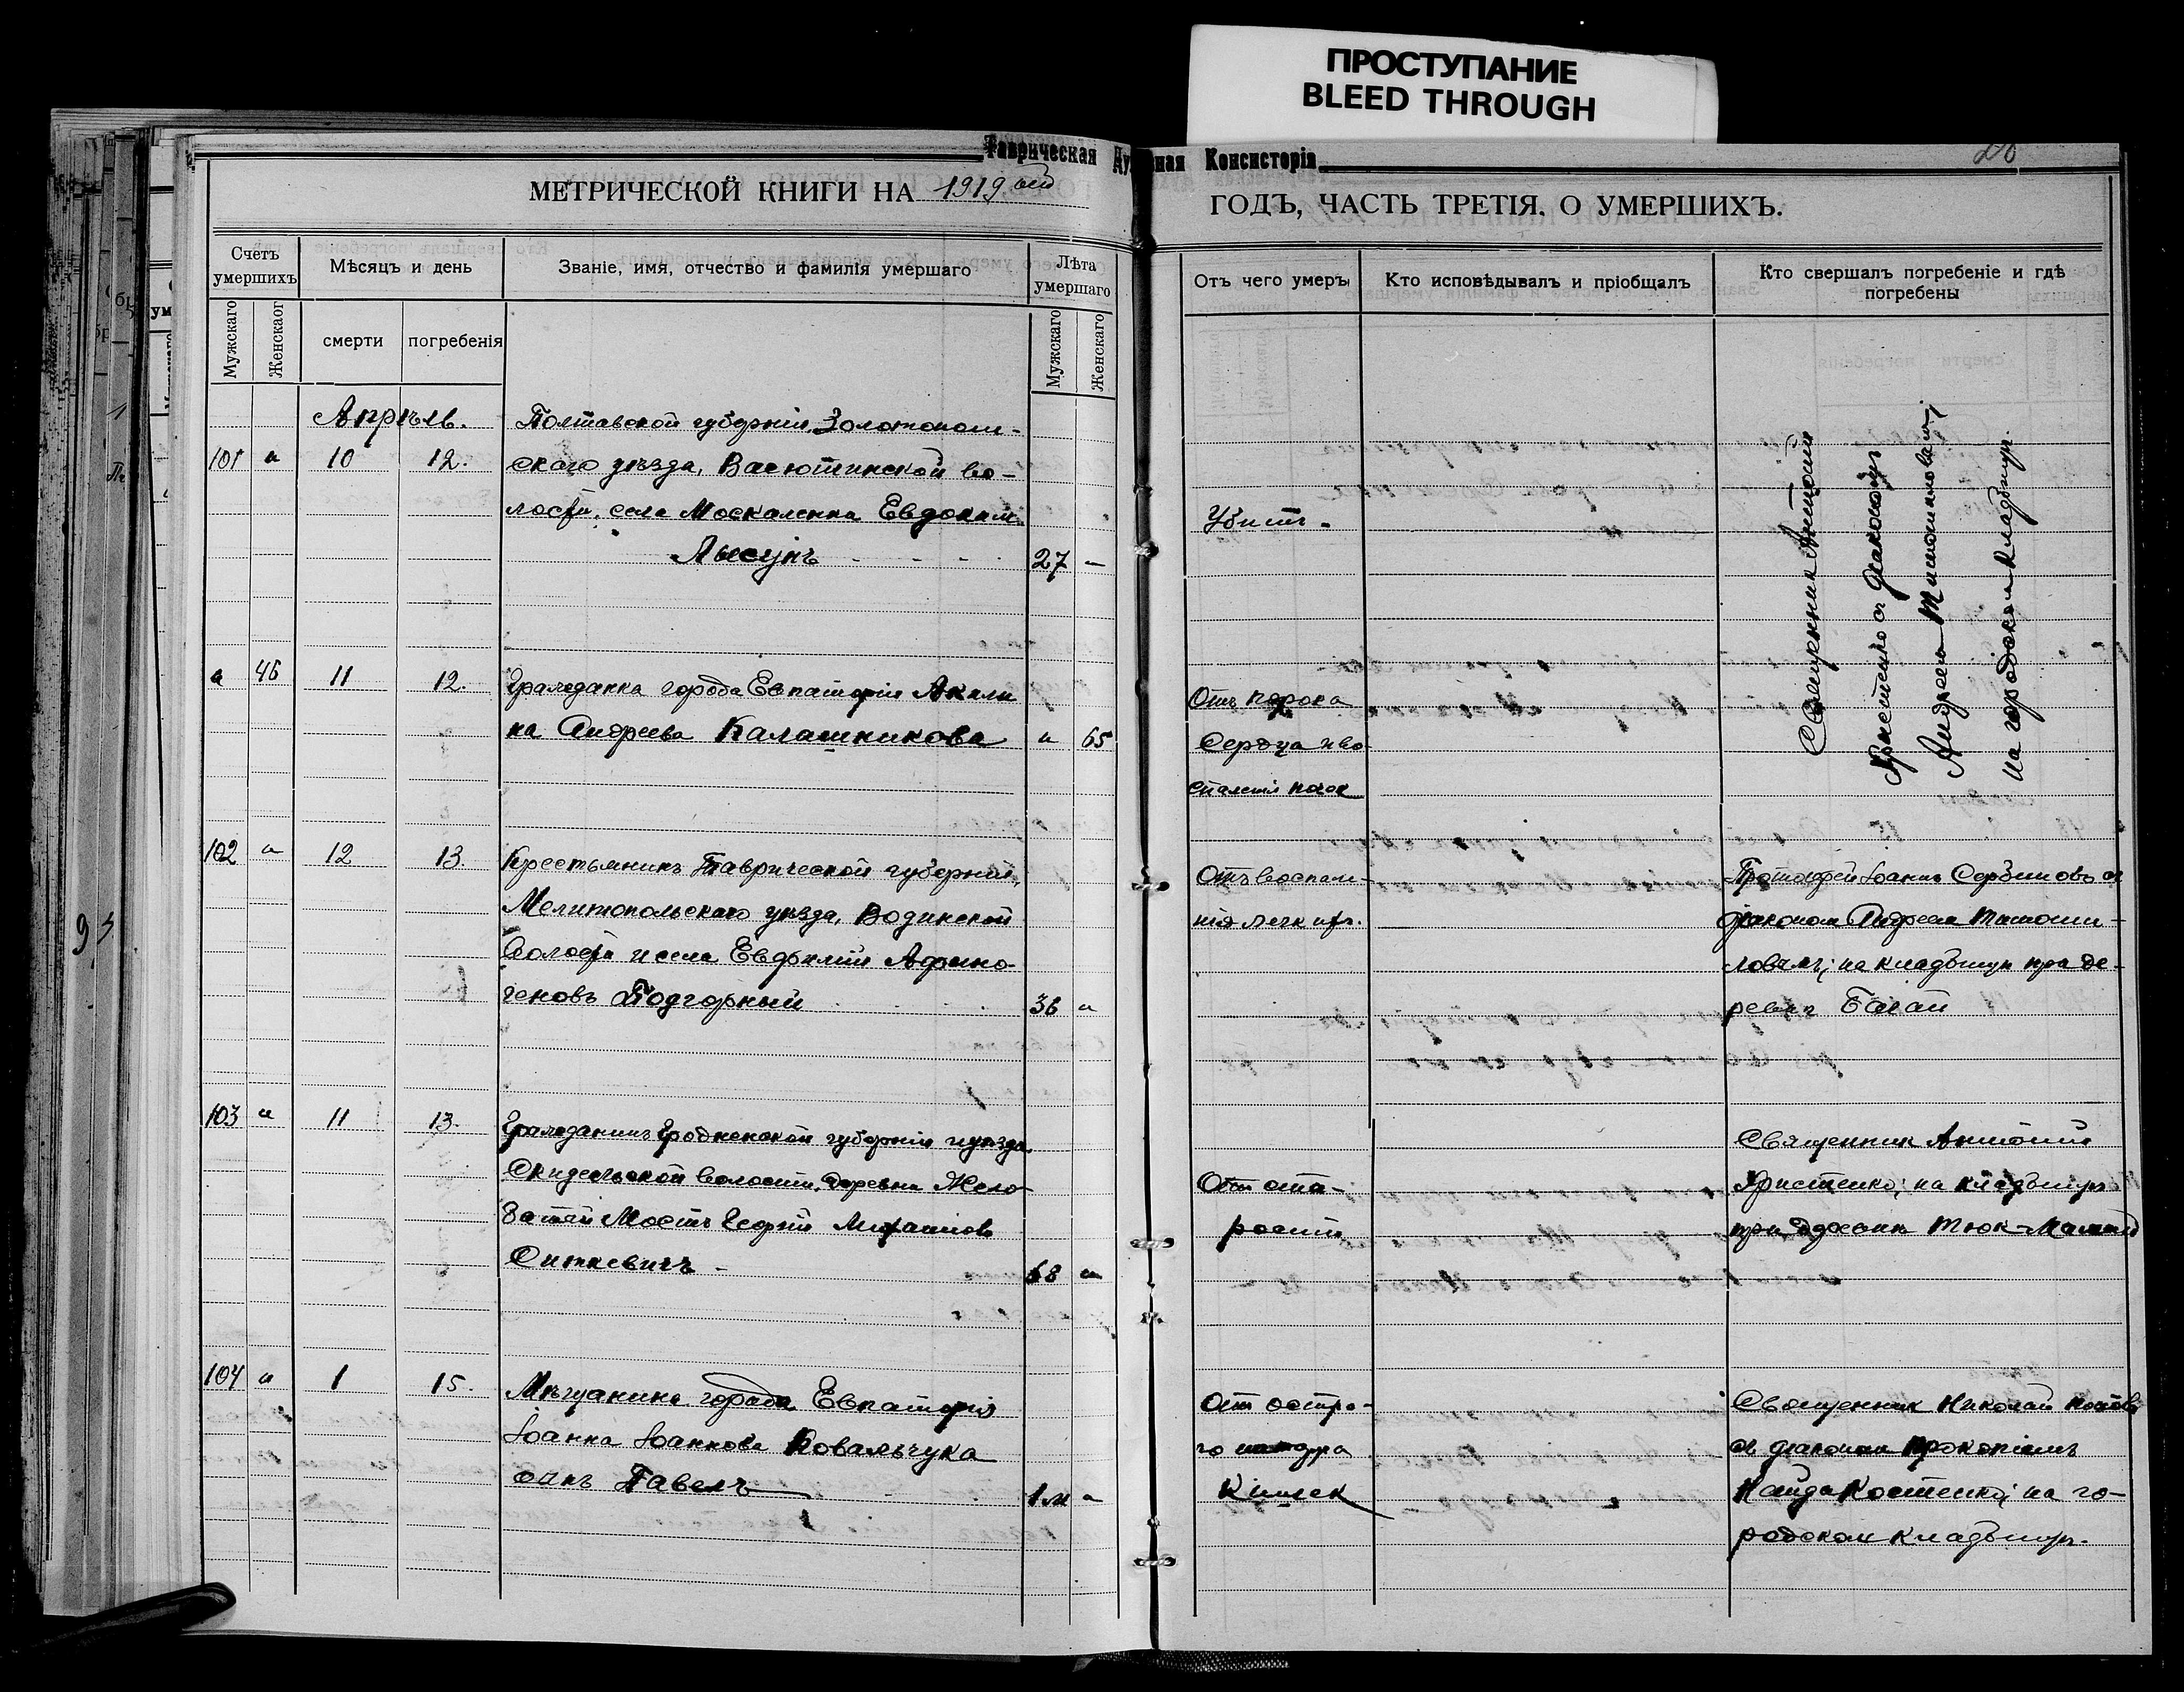 ПРОСТУПАНИЕ
BLEED THROUGH
Таврическая Духовная Консисторія
МЕТРИЧЕСКОЙ КНИГИ НА 1919 ый
ГОДЪ, ЧАСТЬ ТРЕТІЯ, О УМЕРШИХЪ.
Счетъ умершихъ
Мужскаго
Женскаог
Мѣсяцъ и день
смерти
погребенія
Званіе, имя, отчество и фамилія умершаго
Лѣта умершаго
Мужскаго
Женскаго
Отъ чего умеръ
Кто исповѣдывалъ и пріобщалъ
Кто свершалъ погребеніе и гдѣ
погребены
Апрѣль.
101 " 10 12.
Полтавской губерніи, Золотонош-
скаго уѣзда, Васютинской во-
лости, села Москаленки Евдоким
Лысунъ 27 -
Убитъ.
Священник Антоній
Христенко съ діакономъ
Андреем Тимошиловым;
на городском кладбищѣ.
" 46 11 12.
Гражданка города Евпаторіи Акили
на Андреева Калашникова " 65
Отъ порока
Сердца и во-
спаленія почек
102 " 12 13.
Крестьянинъ Таврической губерніи,
Мелитопольскаго уѣзда, Водинской
волости и села Евфимій Афино-
геновъ Подгорный 36 "
Отъ воспале-
нія легкихъ.
Протоіерей Іоаннъ Сербиновъ съ
діаконом Андреем Тимоши-
ловымъ; на кладбищѣ при де-
ревнѣ Багай
103 " 11 13.
Гражданинъ Гродненской губерніи и уѣзда
Скидельской волости, деревни Жело-
Мостъ Георгій
Ситкевичъ - 68 "
От ста-
рости
Священник Антоній
Христенко; на кладбищѣ
при деревнѣ Тюк-Мамай
104 " 1 15.
Мѣщанина города Евпаторіи
Іоанна Іоаннова Ковальчука
сынъ Павелъ 1 м "
От остра-
го катарра
Кишек
Священник Николай
съ діаконом Прокопіемъ
Гайда Костенко; на го-
родском кладбищѣ.